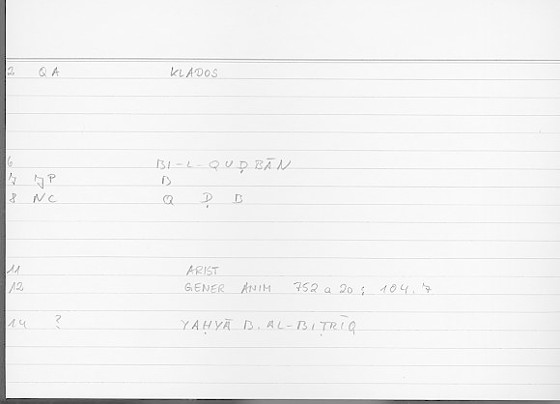 2 QA KLADOS
6 BI-L-QUḌBĀN
7 JP B
8 NC Q Ḍ B
11 ARIST
12 GENER ANIM 752 a 20; 104.7
14 ? YAḤYĀ B. AL-BIṬRĪQ